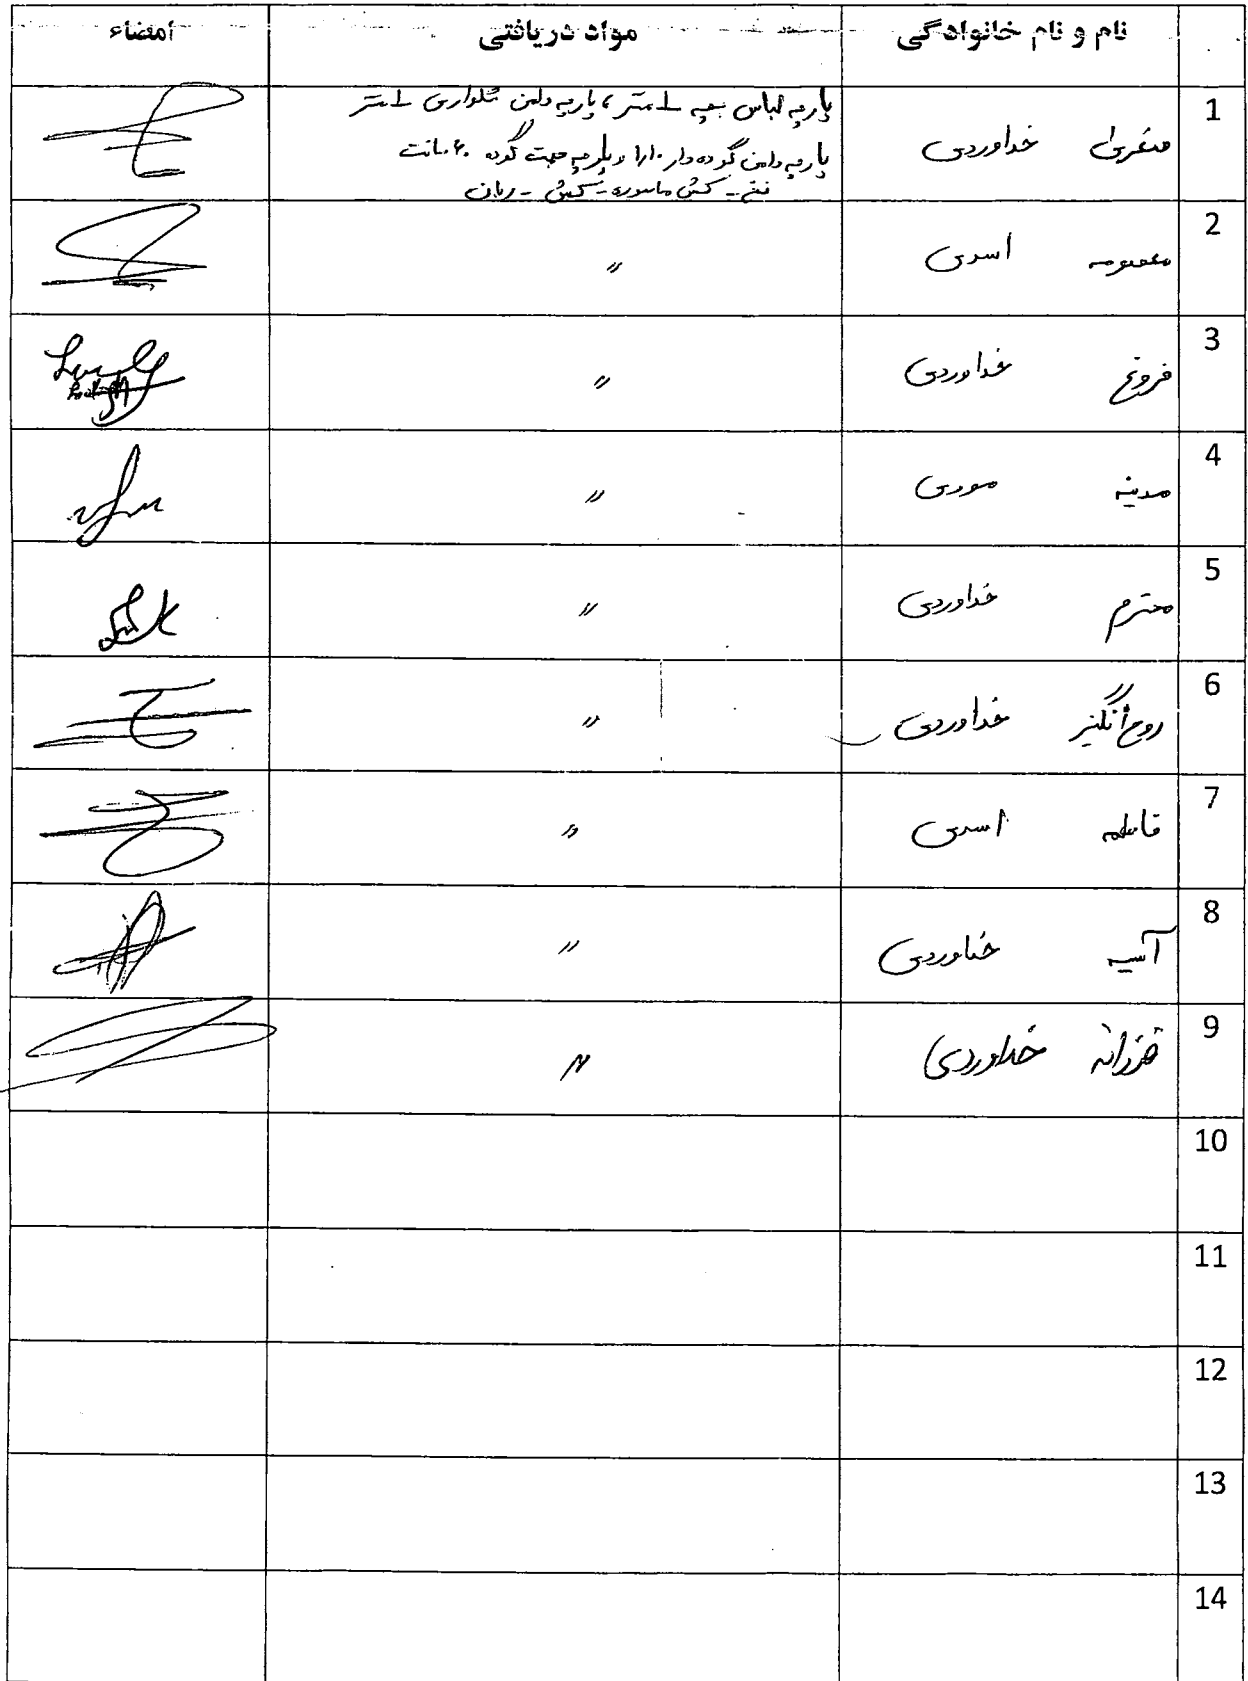 نام و نام خانوادگی مواد دریافتی امضاء
1 صغری خداوردی پارچه لباس بچه ۱ متر ، پارچه دامن شلواری ۱ متر
پارچه دامن گوده دار ۱/۱۰ و پارچه جهت گوده ۶۰ سانت
نخ - کش ماسوره - کش - ربان
2 معصومه اسدی 〃
3 فروغ خداوردی 〃
4 مدینه موردی 〃
5 محترم خداوردی 〃
6 روح انگیز خداوردی 〃
7 فاطمه اسدی 〃
8 آسیه خداوردی 〃
9 فرزانه خداوردی 〃
10
11
12
13
14